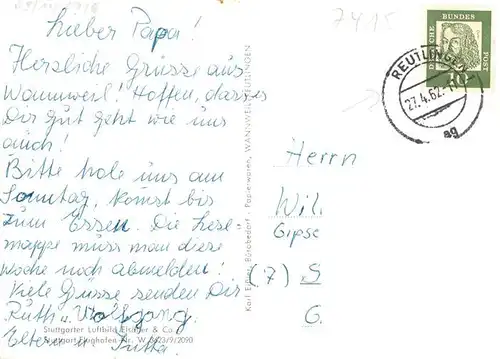 7415
Lieber Papa!
Herzliche Grüsse aus
Wannweil! Hoffen, dass es
Dir gut geht wie uns
auch!
Bitte hole uns am
Sonntag, komst bis
zum Essen. Die Lese-
mappe muss man diese
Woche noch abmelden!
Viele Grüsse senden Dir
Ruth u. Wolfgang.
Eltern u. Jutta.
Stuttgarter Luftbild Elsäßer & Co.
Stuttgart Flughafen Nr. W 3623/9/2090
Karl Bürobedarf - Papierwaren, WANNWEIL/REUTLINGEN
DEUTSCHE BUNDES POST
10
REUTLINGEN
27.4.62
ag
Herrn
Wil.
Gipse
(7) S
G.